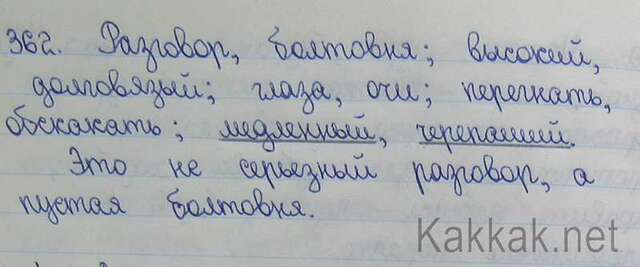 362. Разговор, болтовня; высокий,
долговязый; глаза, очи; перегнать,
обскакать; медленный, черепаший.
Это не серьезный разговор, а
пустая болтовня.
Kakkak.net